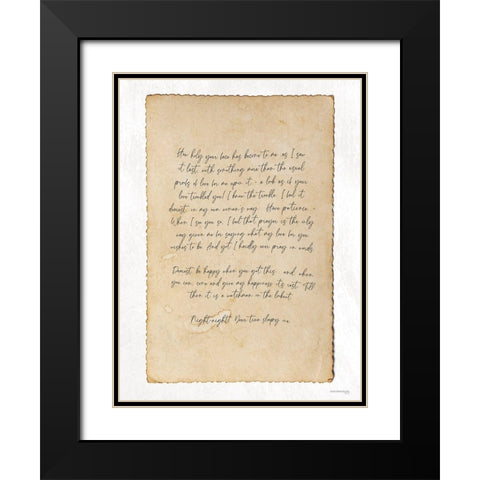 How holy your face has become to me as I saw
it last, with something more than the usual
proofs of love for me upon it, - a look as if your
love troubled you! I knew the trouble. I feel it
dearest, in my own woman's way. Have patience. -
When I see you so, I feel that prayer is the only
way given me for saying what my love for you
wishes to be. And yet I hardly ever pray in words.
Dearest, be happy when you get this: and, when
you can, come and give my happiness its rest. Till
then it is a watchman on the lookout.
Night-night! Your true sleepy one